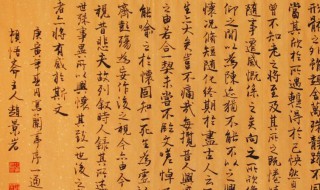 當其欣於所遇輒得於己快然自
曾不知老之將至及其所之既惓情
隨事遷感慨係之矣向之所欣俛
仰之間以為陳迹猶不能不以之興
懷況修短隨化終期於盡古人云
死生亦大矣豈不痛哉每攬昔人興感
之由若合一契未嘗不臨文嗟悼不
能喻之於懷固知一死生為虛誕
齊彭殤為妄作後之視今亦由今
視昔悲夫故列敘時人錄其所述
世殊事異所以興懷其致一也後之
者亦將有感於斯文
庚寅年蘭亭序一過
齋主人趙景岩